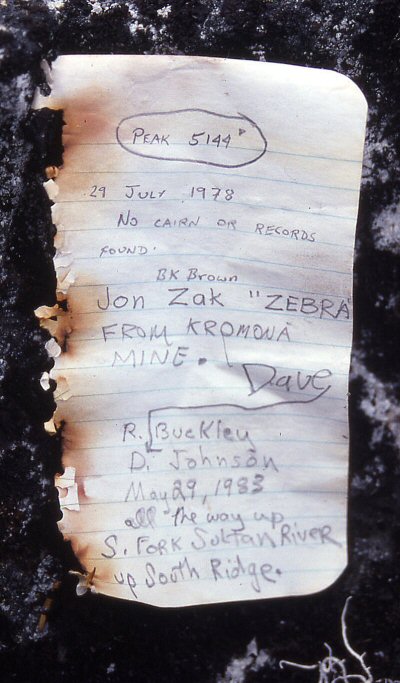 PEAK 5144'
29 JULY 1978
NO CAIRN OR RECORDS
FOUND.
BK Brown
Jon Zak "ZEBRA
FROM KROMONA
MINE.
Dave
R. Buckley
D. Johnson
May 29, 1983
all the way up
S. FORK SULTAN RIVER
up South Ridge.